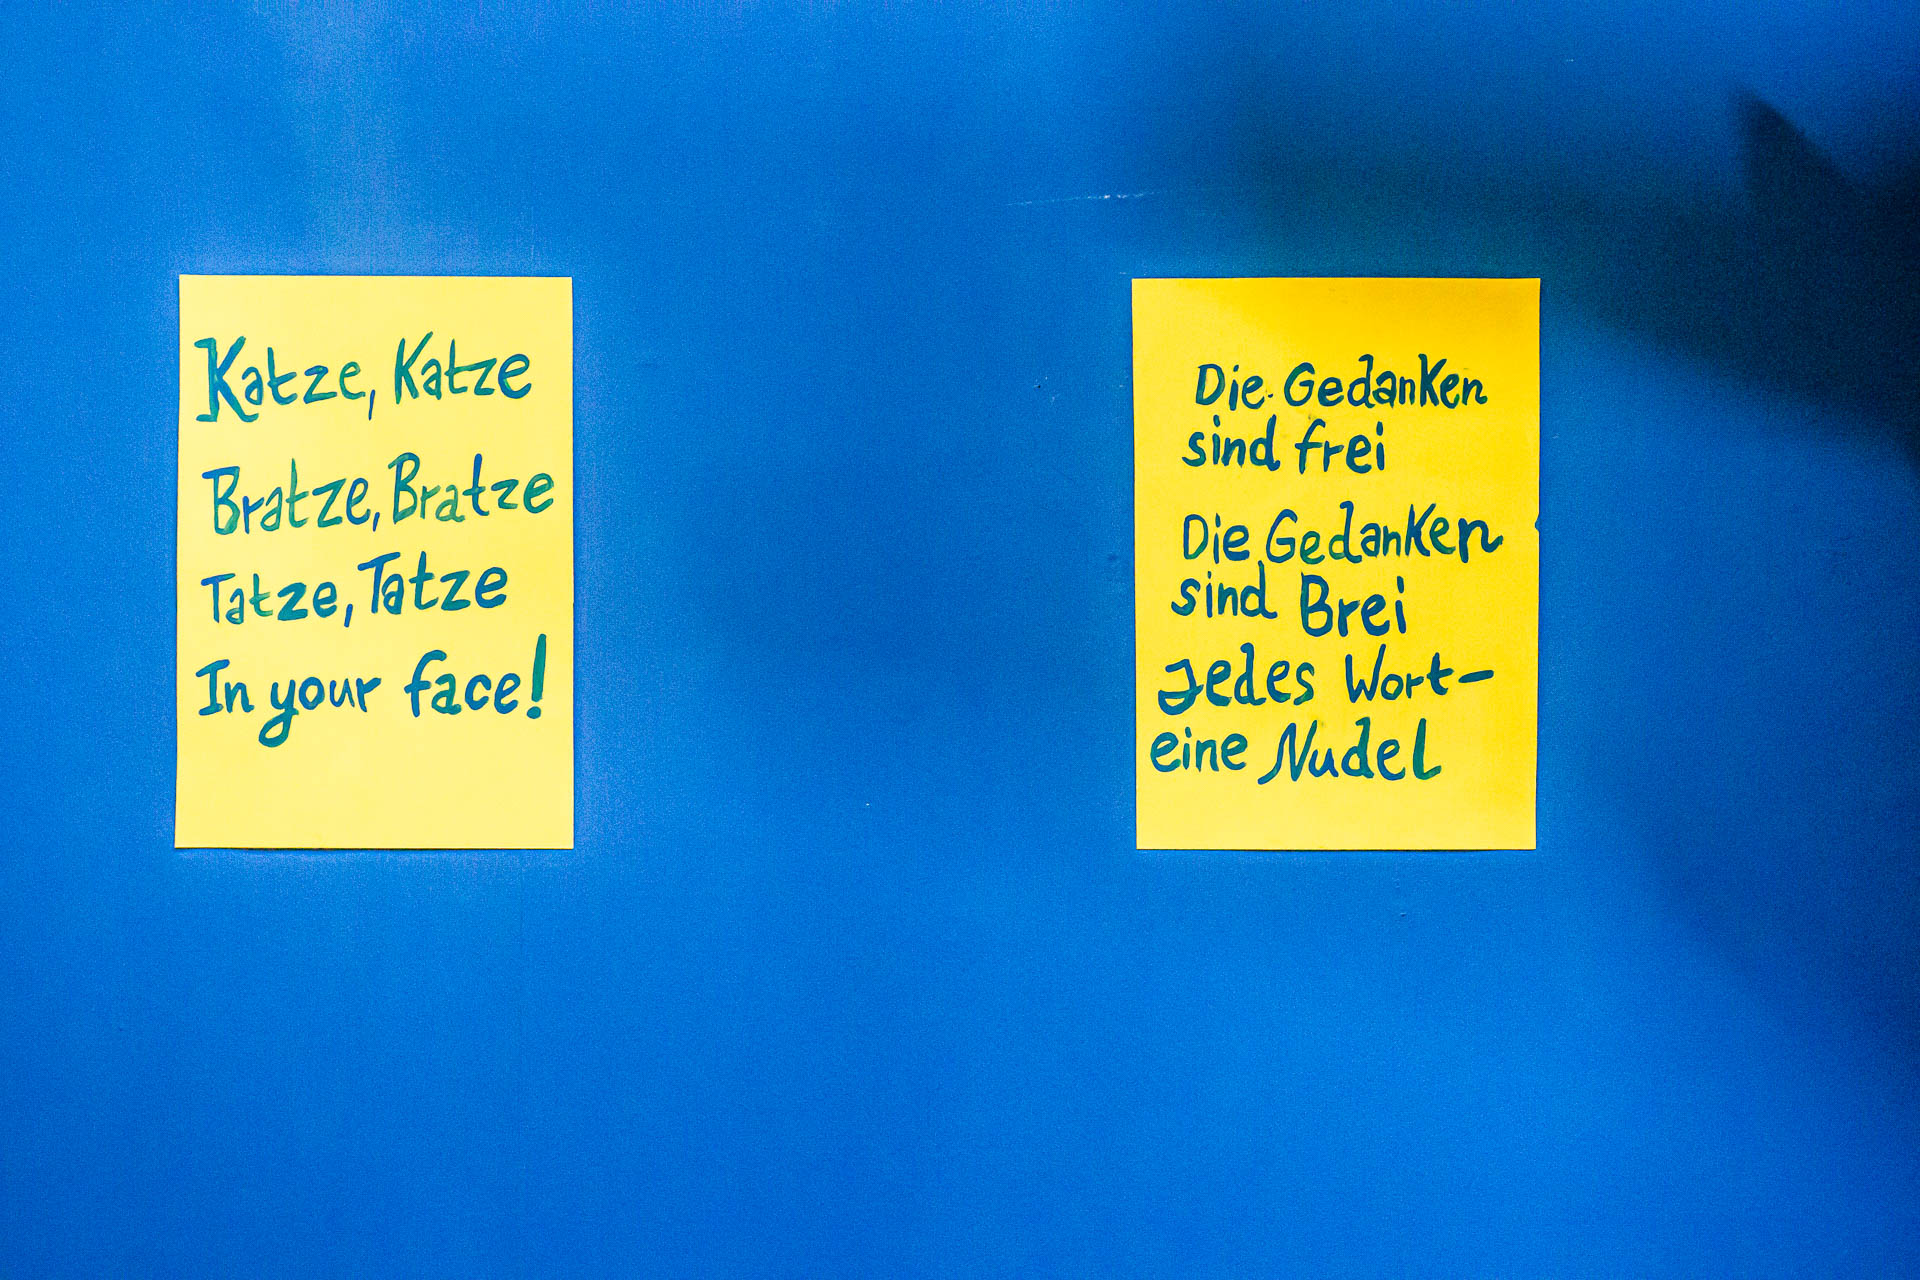 Katze, Katze
Bratze, Bratze
Tatze, Tatze
In your face!
Die Gedanken
sind frei
Die Gedanken
sind Brei
Jedes Wort–
eine Nudel